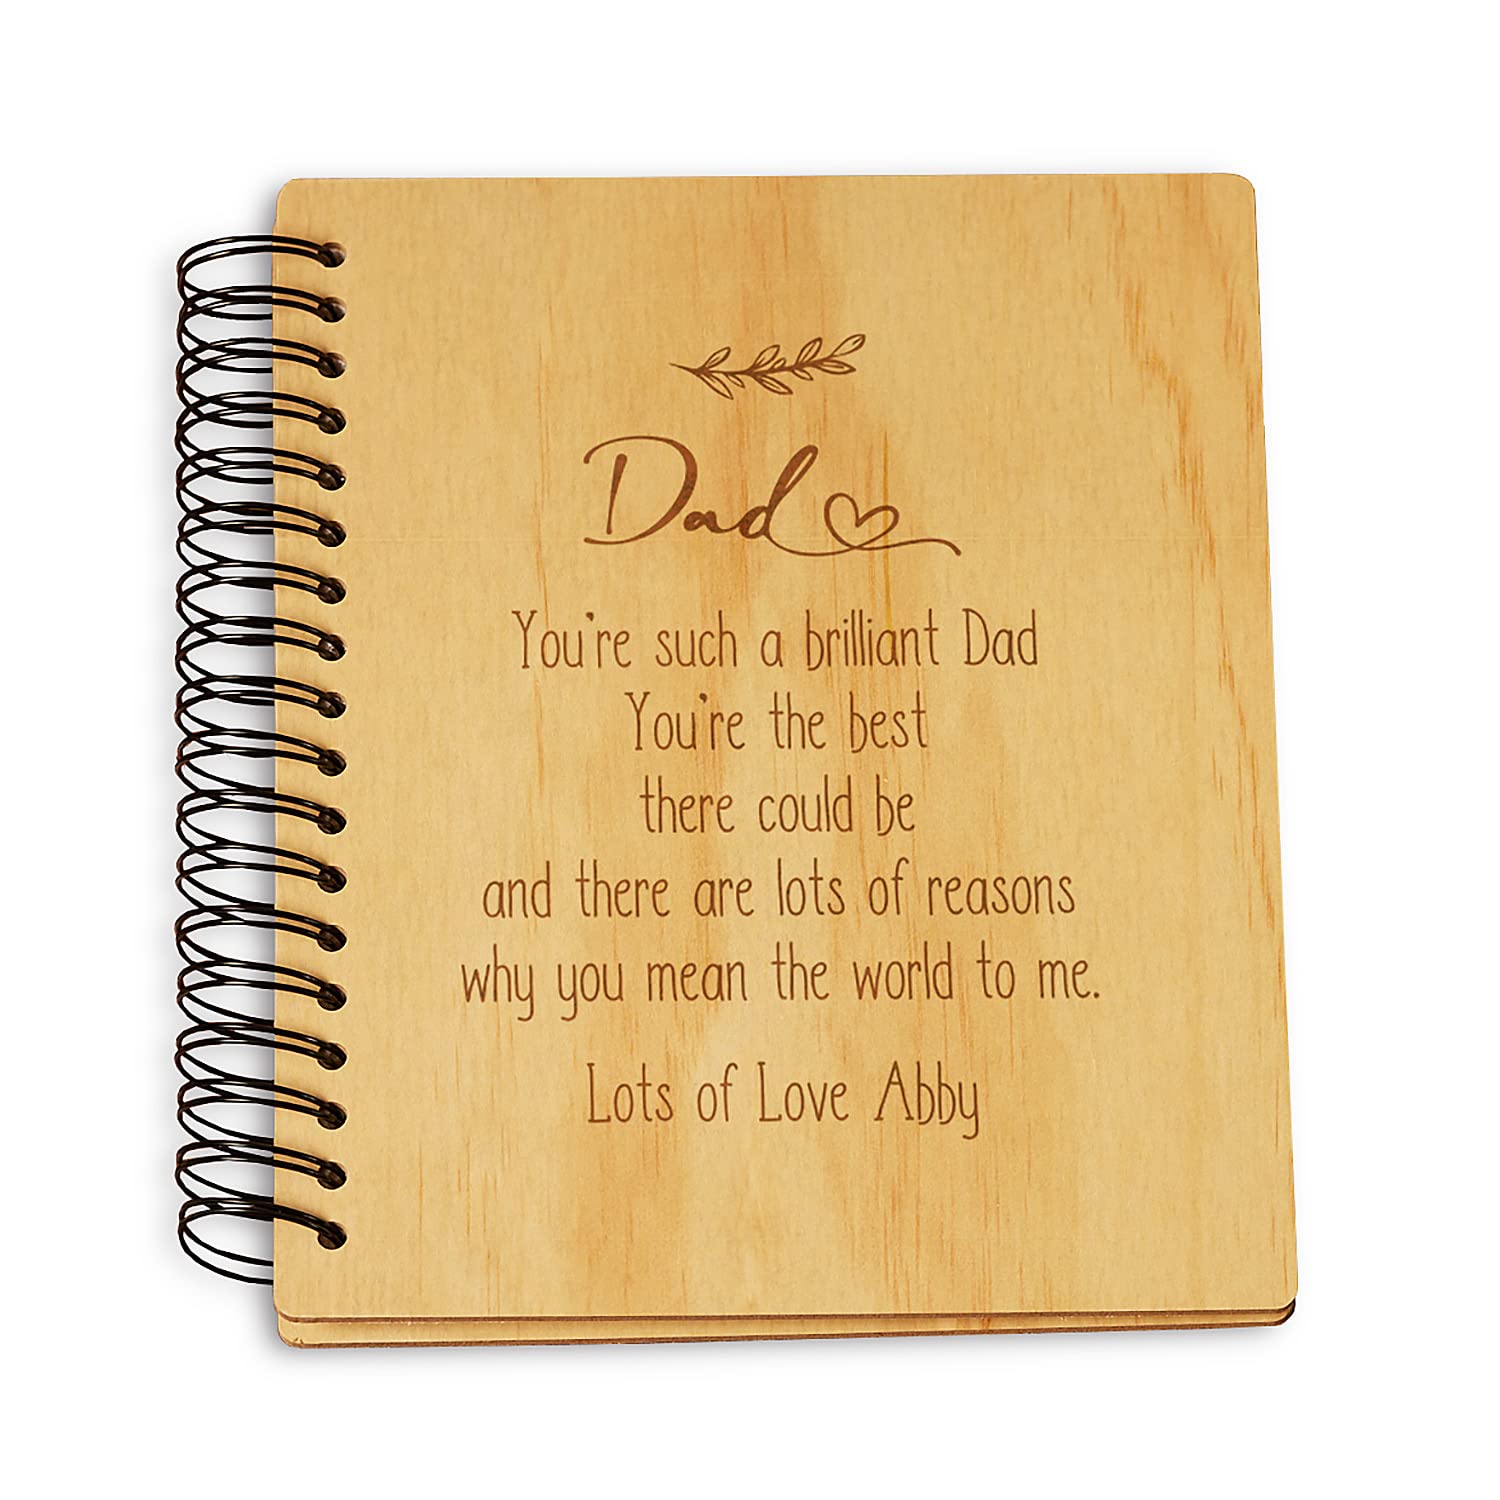 Dad
You're such a brilliant Dad
You're the best
there could be
and there are lots of reasons
why you mean the world to me.
Lots of Love Abby